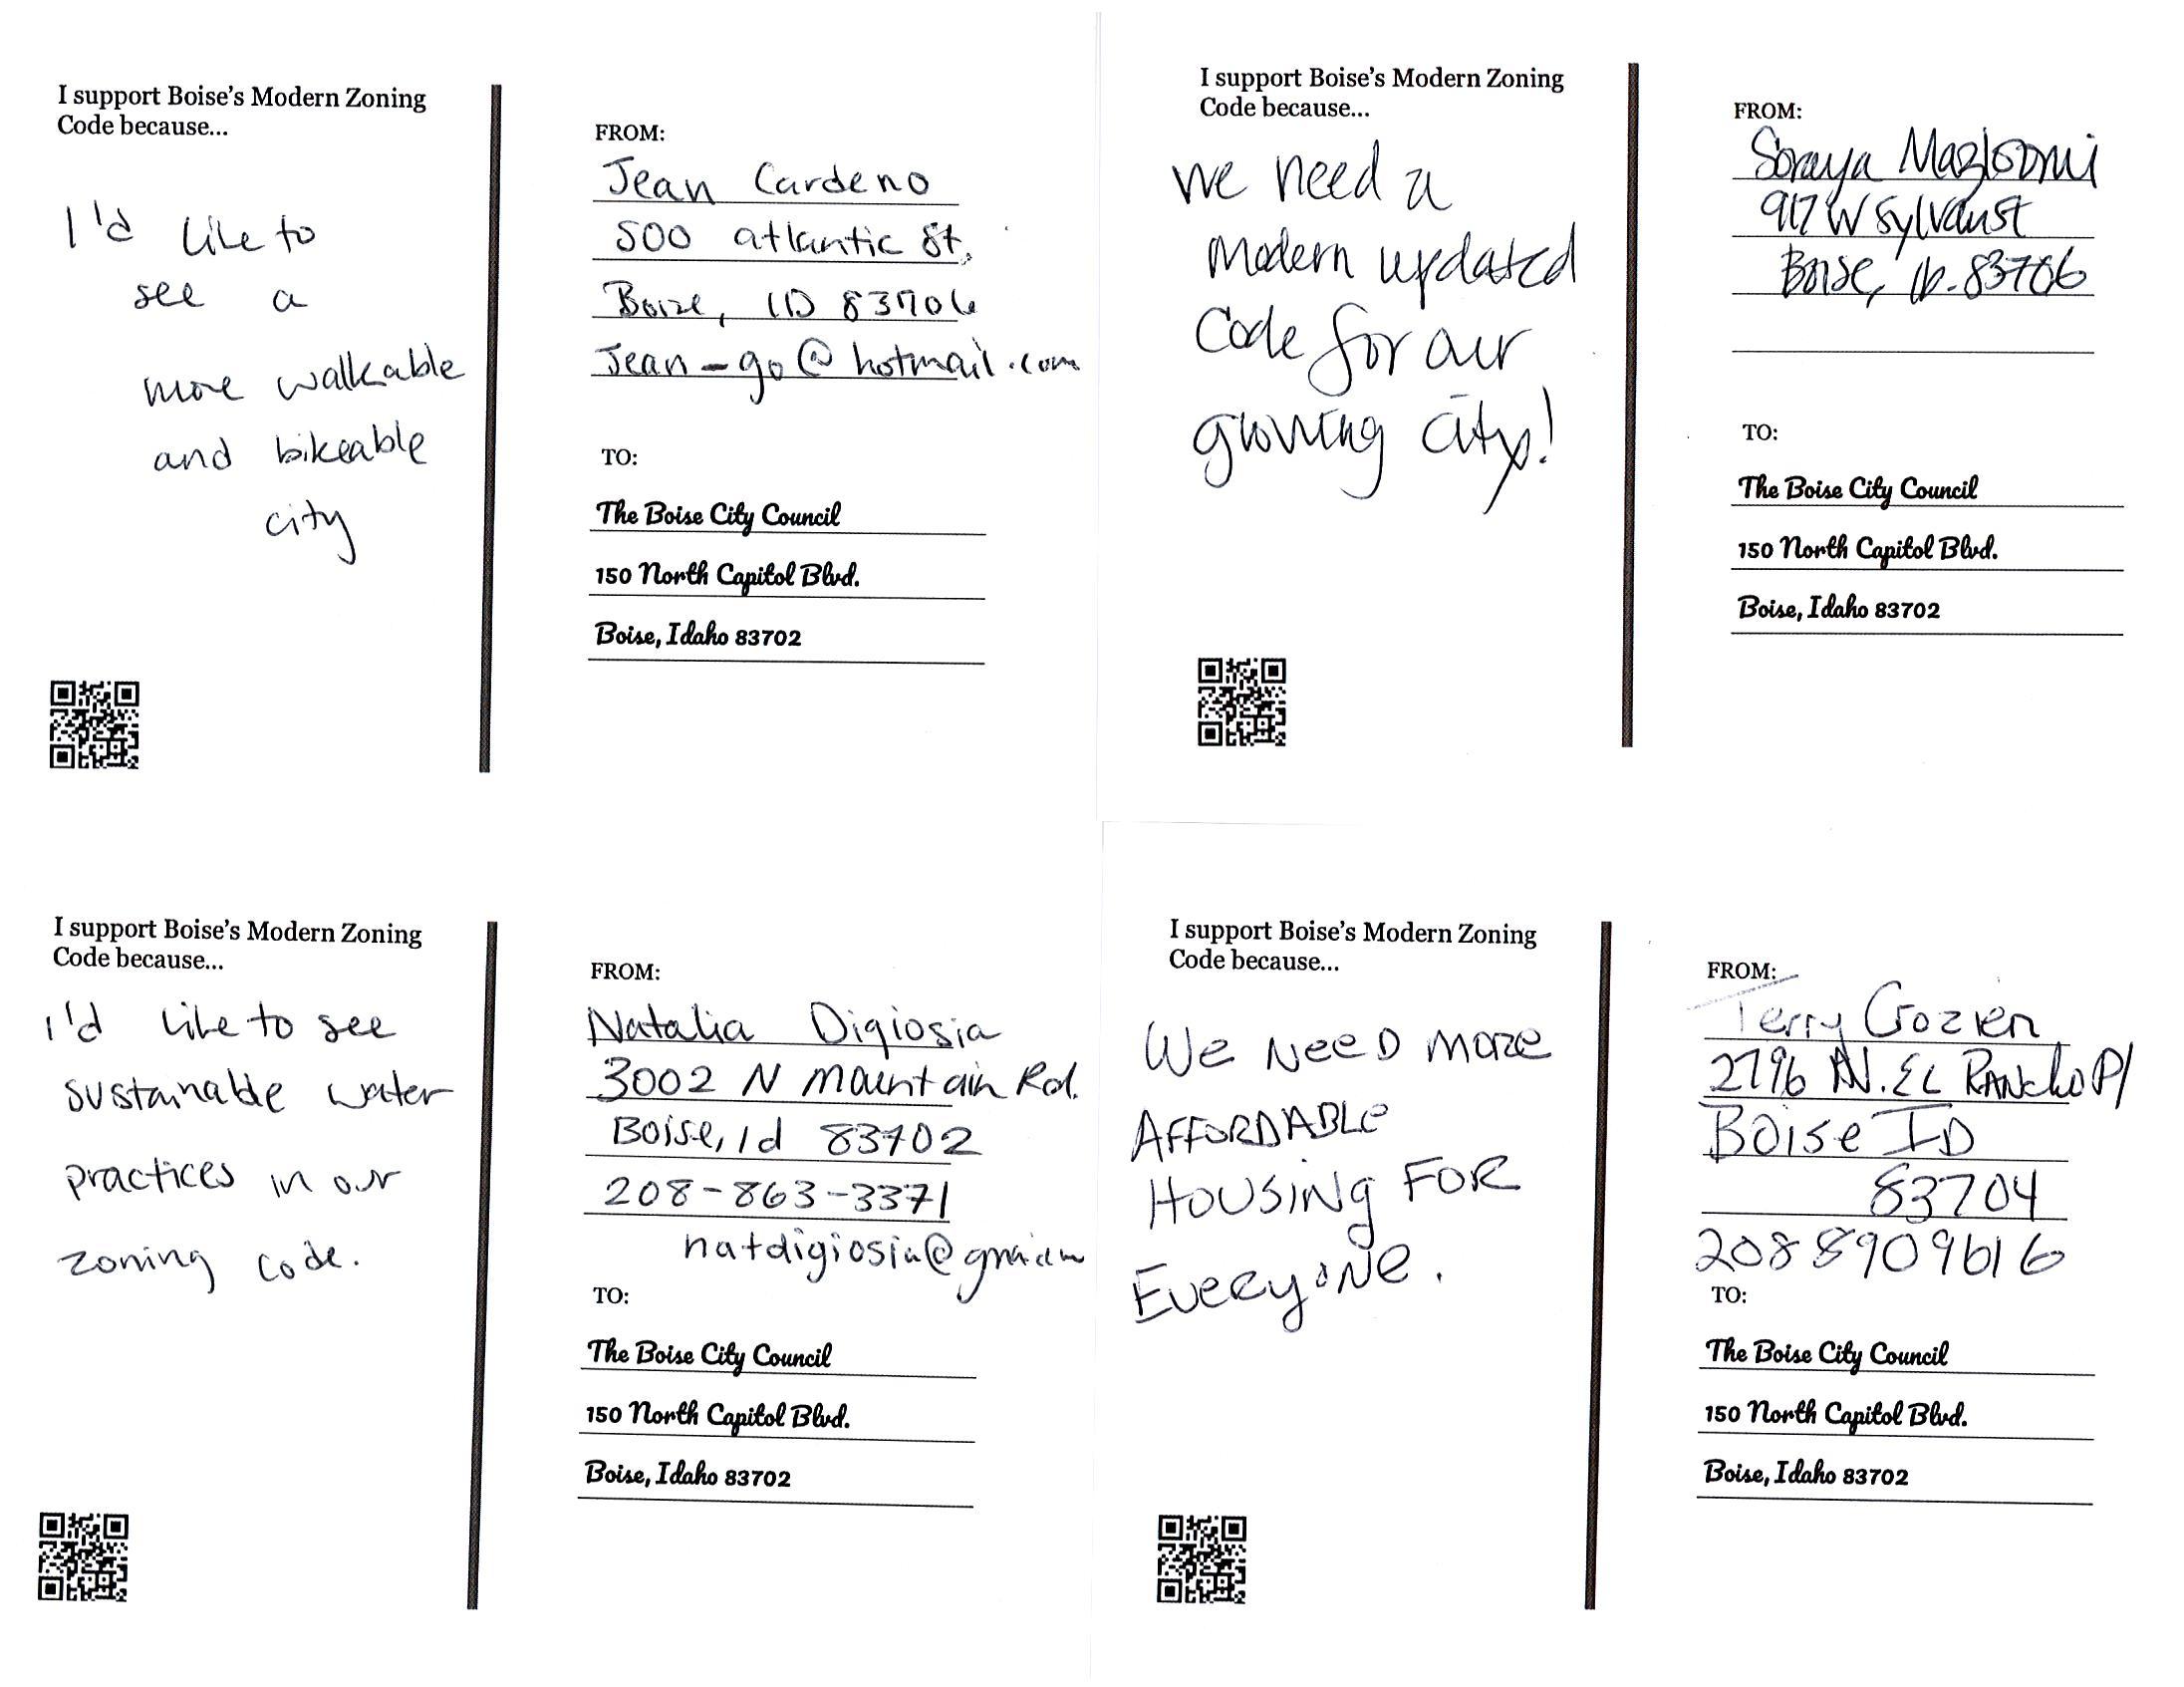 I support Boise's Modern Zoning
Code because...
I'd like to
see a
more walkable
and bikeable
city
FROM:
Jean Cardeno
500 atlantic St.
Boise, ID 83706
Jean-go@hotmail.com
TO:
The Boise City Council
150 North Capitol Blvd.
Boise, Idaho 83702
I support Boise's Modern Zoning
Code because...
we need a
modern updated
code for our
growing city!
FROM:
Soraya Mazloomi
917 W Sylvan st
Boise, ID. 83706
TO:
The Boise City Council
150 North Capitol Blvd.
Boise, Idaho 83702
I support Boise's Modern Zoning
Code because...
I'd like to see
sustainable water
practices in our
zoning code.
FROM:
Natalia Digiosia
3002 N Mountain Rd.
Boise, Id 83702
208-863-3371
TO:
The Boise City Council
150 North Capitol Blvd.
Boise, Idaho 83702
I support Boise's Modern Zoning
Code because...
We NeeD more
AFFORDABLe
HOUSiNg FOR
EveryoNe.
FROM:
Terry Crozier
2796 N. EL RANCHo Pl
Boise ID
83704
2088909616
TO:
The Boise City Council
150 North Capitol Blvd.
Boise, Idaho 83702